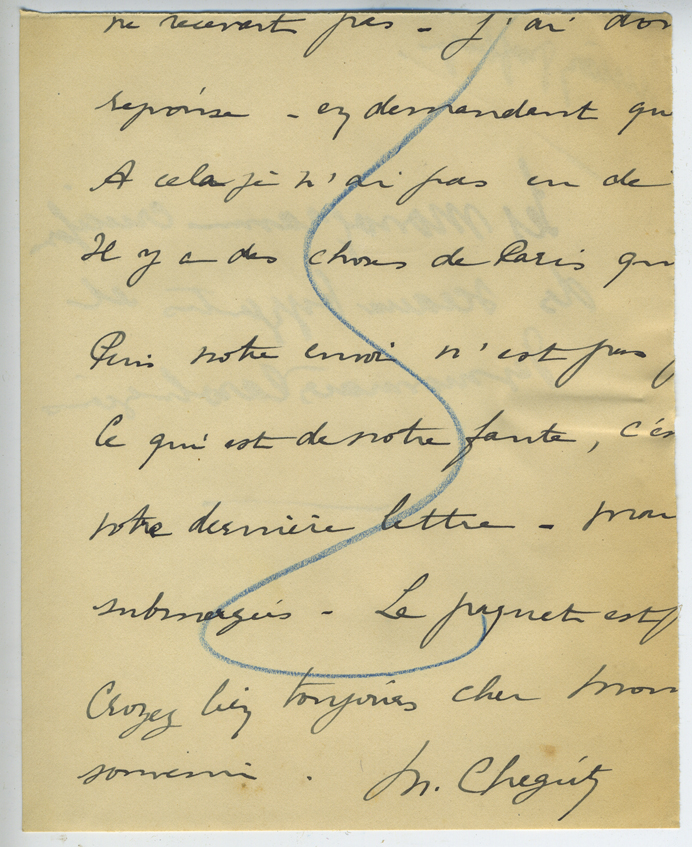 ne recevant pas - j'ai don
reponse - en demandant qu
A cela je n'ai pas eu de
Il y a des choses de Paris qu
Puis notre envoi n'est pas
Ce qui est de notre faute, c'es
votre dernière lettre - mon
submergés - Le paquet est
Croyez bien toujours cher Mon
souvenir. M.